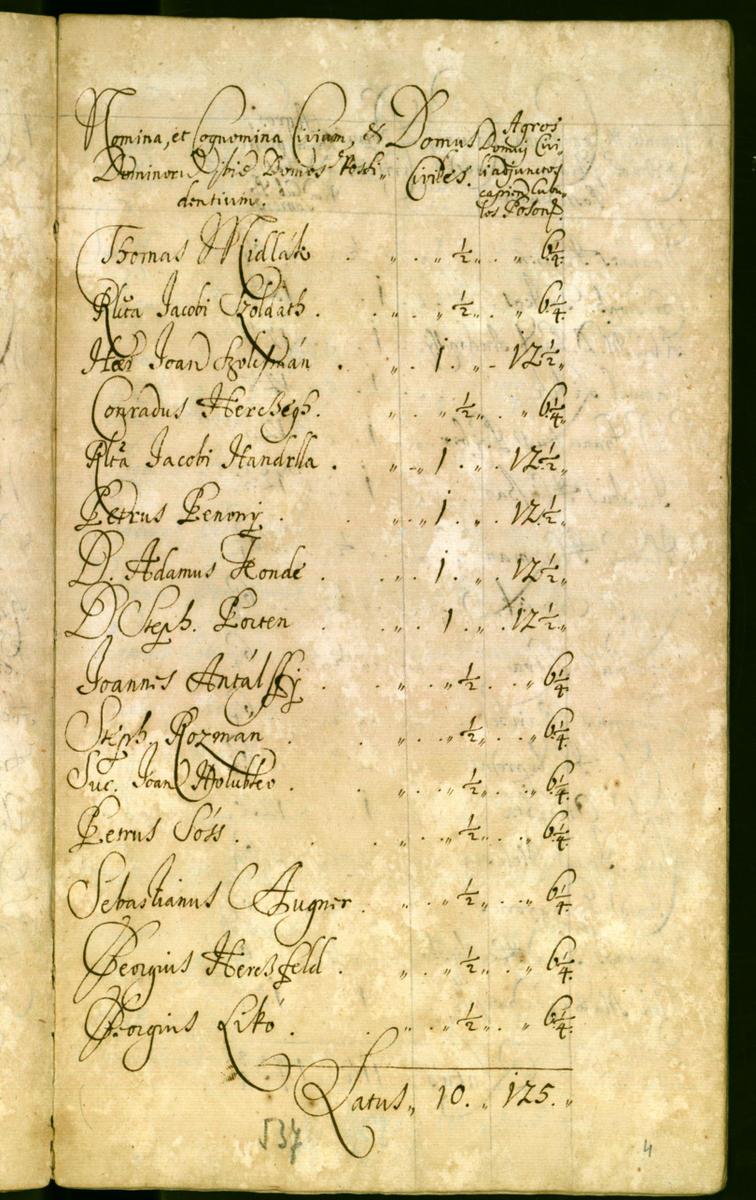 Nomina, et Cognomina Civium, et Domus Agros
Dominorū Domos Possi- Civiles. Domuj Civi-
dentium. li adjunctos
capien. Cubu-
los Poson.
Thomas Midlák . „ ½ „ „ 6¼.
Rlta Jacobi Szoldáth . „ ½ „ „ 6¼.
Hær Joan „ 1 . „ 12½ „
Conradus Herczegh . „ ½ „ „ 6¼.
Rlta Jacobi Handrlla . „ 1 . „ 12½ „
Petrus Penony . „ 1 . „ 12½ „
D. Adamus Konde . „ 1 . „ 12½ „
D. Steph. Porten . „ 1 . „ 12½ „
Joannes Antálffÿ . „ ½ „ „ 6¼.
Steph. Rozmán . „ ½ „ „ 6¼.
Suc. Joan Holubke . „ ½ „ „ 6¼.
Petrus Sóss . „ ½ „ „ 6¼.
Sebastianus Augner . „ ½ „ „ 6¼.
Georgius Herczfeld . „ ½ „ „ 6¼.
Georgius Likó . „ ½ „ „ 6¼.
Latus „ 10 . „ 125 . „
537
4